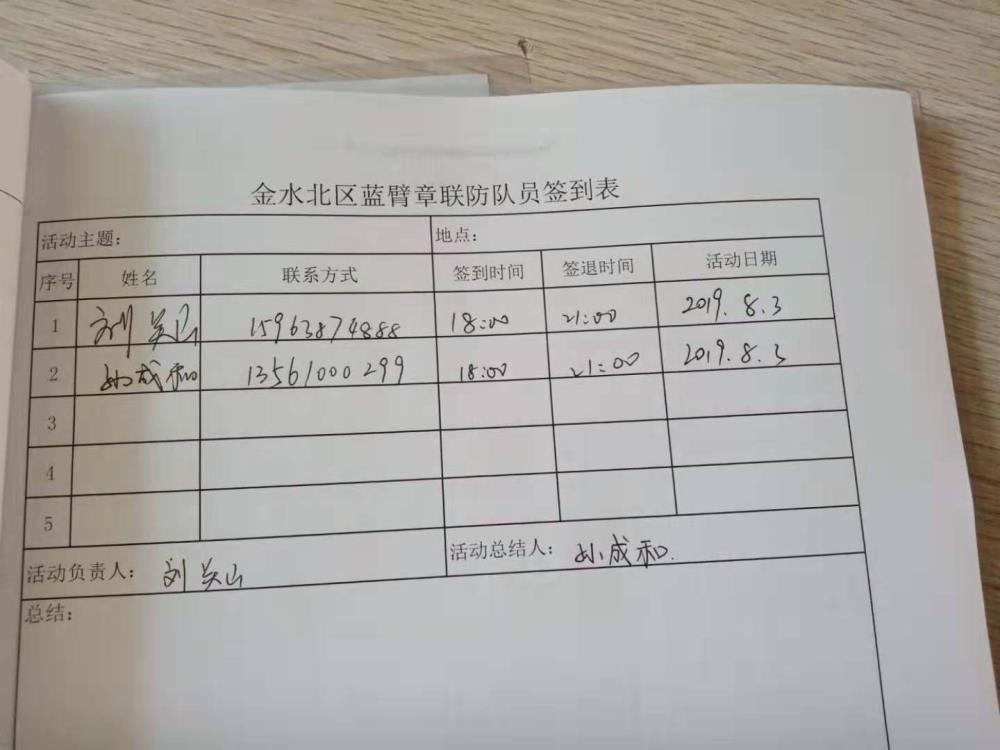 金水北区蓝臂章联防队员签到表
活动主题： 地点：
序号 姓名 联系方式 签到时间 签退时间 活动日期
1 刘关山 15963874888 18:00 21:00 2019.8.3
2 孙成和 13561000299 18:00 21:00 2019.8.3
3
4
5
活动负责人： 刘关山 活动总结人： 孙成和.
总结：